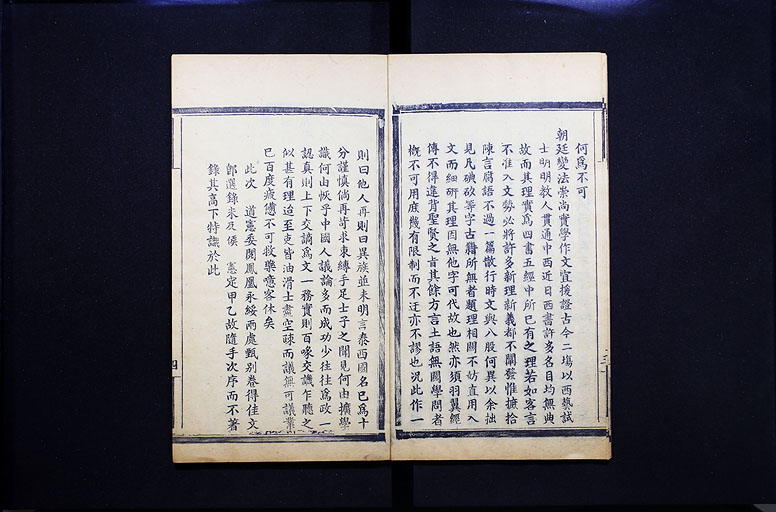 何爲不可
朝廷變法崇尚實學作文宜援證古今二塲以西藝試
士明明教人貫通中西近日西書許多名目均無典
故而其理實爲四書五經中所已有之理若如客言
不准入文勢必將許多新理新義都不闡發惟摭拾
陳言腐語不過一篇散行時文與八股何異以余拙
見凡碘矽等字古籍所無者題理相關不妨直用入
文而細硏其理因無他字可代故也然亦須羽翼經
傳不得違背聖賢之旨其餘方言土語無關學問者
槪不可用庶幾有限制而不迂亦不謬也況此作一
則曰他人再則曰異族並未明言泰西國名已爲十
分謹慎倘再苛求束縛手足士子之聞見何由擴學
識何由恢乎中國人議論多而成功少往往爲政一
認真則上下交謫爲文一務實則百喙交譏乍聽之
似甚有理迨至吏皆油滑士盡空疎而議無可議業
已百度疲憊不可救藥噫客休矣
此次 道憲委閱鳳凰永綏兩處甄别卷得佳文
郎選錄未及俟 憲定甲乙故隨手次序而不著
錄其高下特識於此
三
四